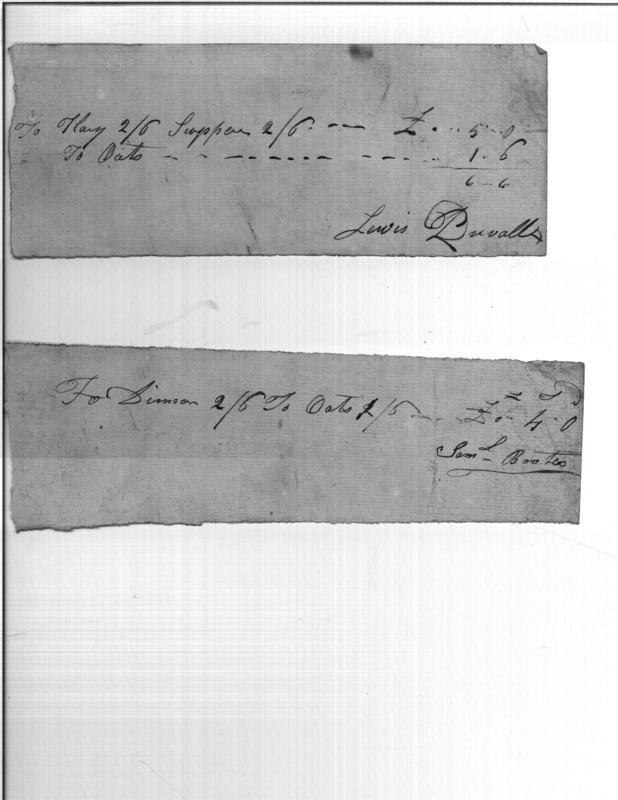 To Hay 2/6 Supper 2/6. --- £ . .. 5 .. 0
To Oats - - - - - - - - - - - - 1 . 6
6 - 6
Lewis Duvall
£ S D
To Dinner 2/6 To Oats 1/6 --- £ 0 . 4 . 0
Saml Bootes